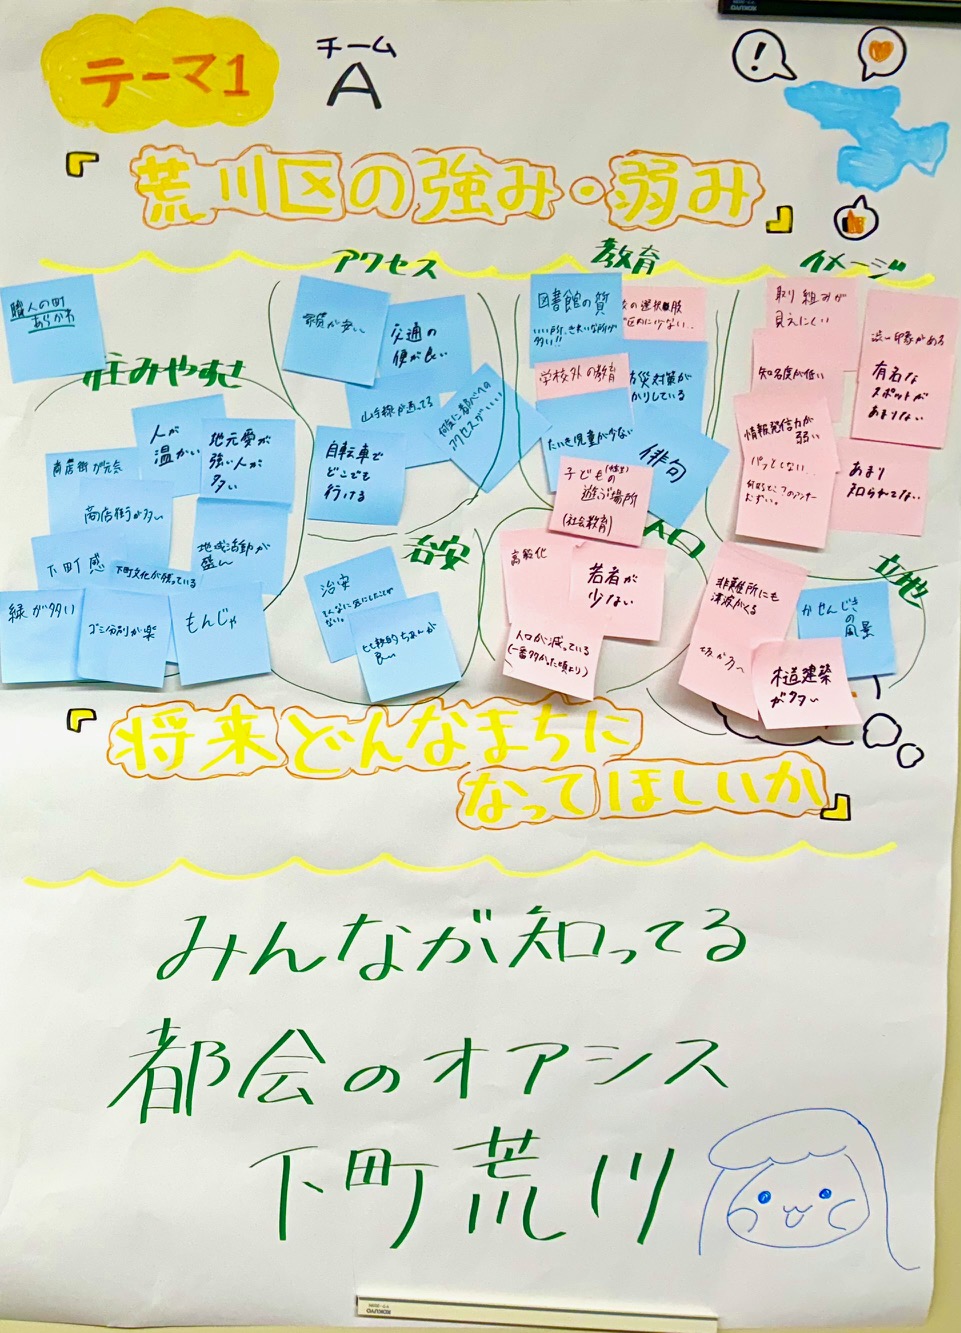 テーマ1
チーム
A
『荒川区の強み・弱み』
アクセス
教育
イメージ
職人の町
あらかわ
住みやすさ
人が
温かい
地元愛が
強い人が
多い
商店街が元気
商店街が多い
地域活動が
盛ん
下町感
下町文化が残っている
緑が多い
ゴミ分別が楽
もんじゃ
家賃が安い
交通の
便が良い
山手線が通ってる
自転車で
どこでも
行ける
アクセスがいい
治安
治安
比較的ちあんが
良い
図書館の質
いい所、きれいな所が
多い!!
の選択肢
区内に少ない..
学校外の教育
防災対策が
かりしている
たいき児童が少ない
俳句
子どもの
遊ぶ場所
(社会教育)
人口
高齢化
若者が
少ない
人口が減っている
(一番多かった頃より)
取り組みが
見えにくい
知名度が低い
情報発信力が
弱い
パッとしない...
渋い印象がある
有名な
スポットが
あまりない
あまり
知られてない
立地
非難所にも
津波がくる
かせんじきの
風景
木造建築
が多い
『将来どんなまちに
なってほしいか』
みんなが知ってる
都会のオアシス
下町荒川
KOKUYO